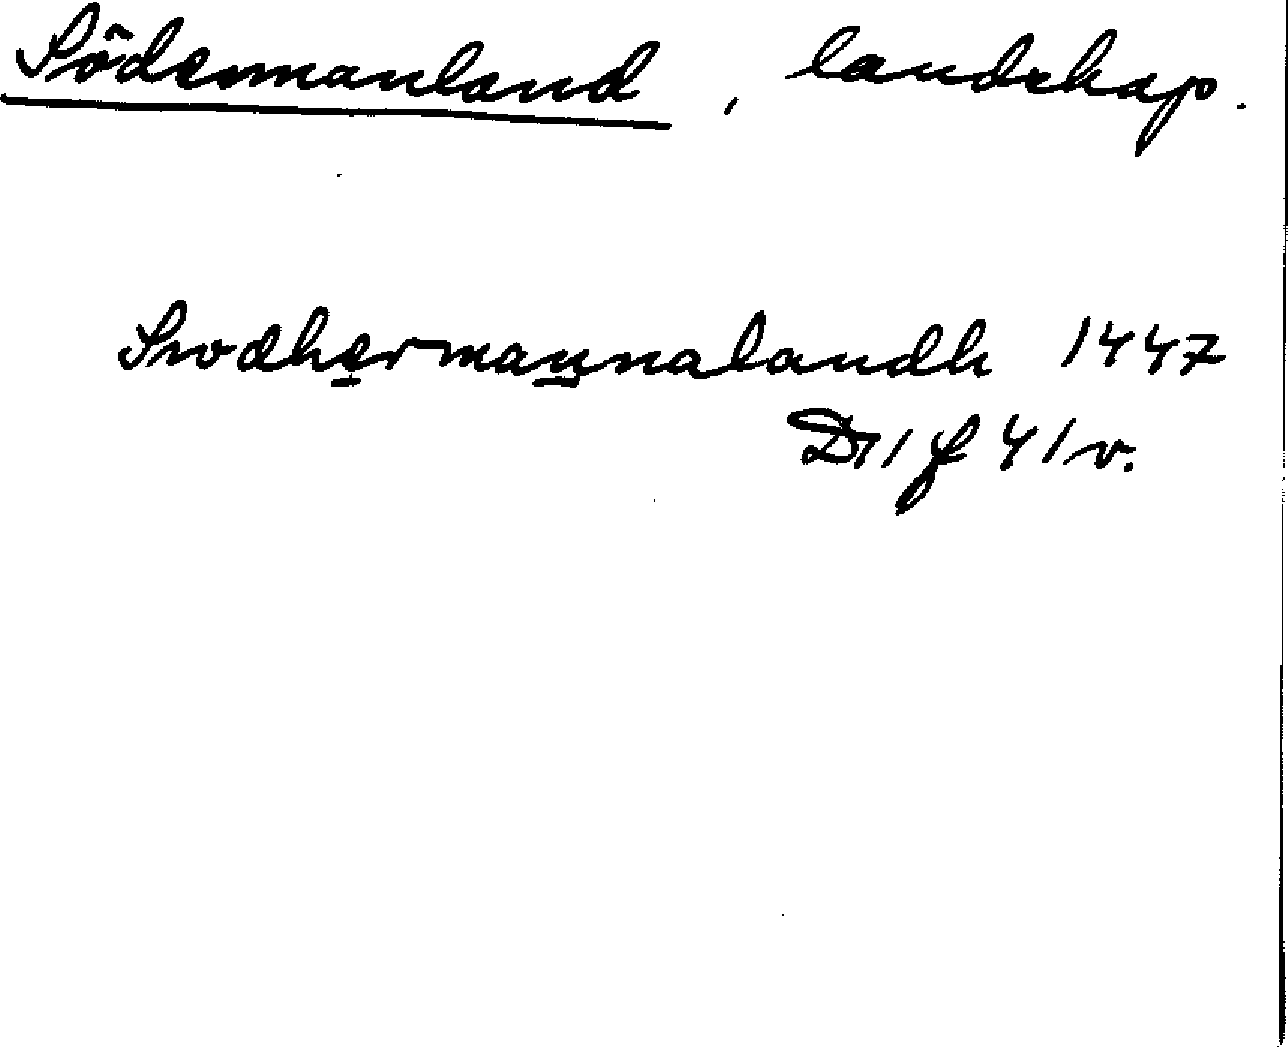 Södermanland, landskap.
Swdhermannalandh 1447
D 11 f 41 v.